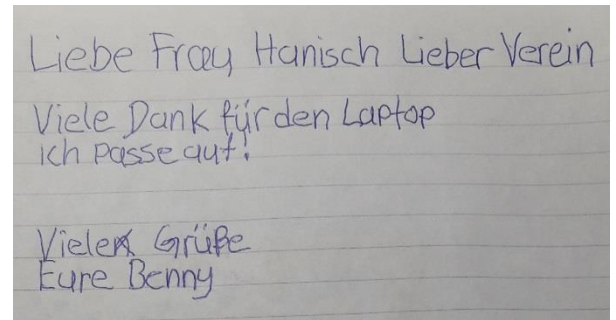 Liebe Frau Hanisch Lieber Verein
Viele Dank für den Laptop
ich passe auf!
Viele Grüße
Eure Benny